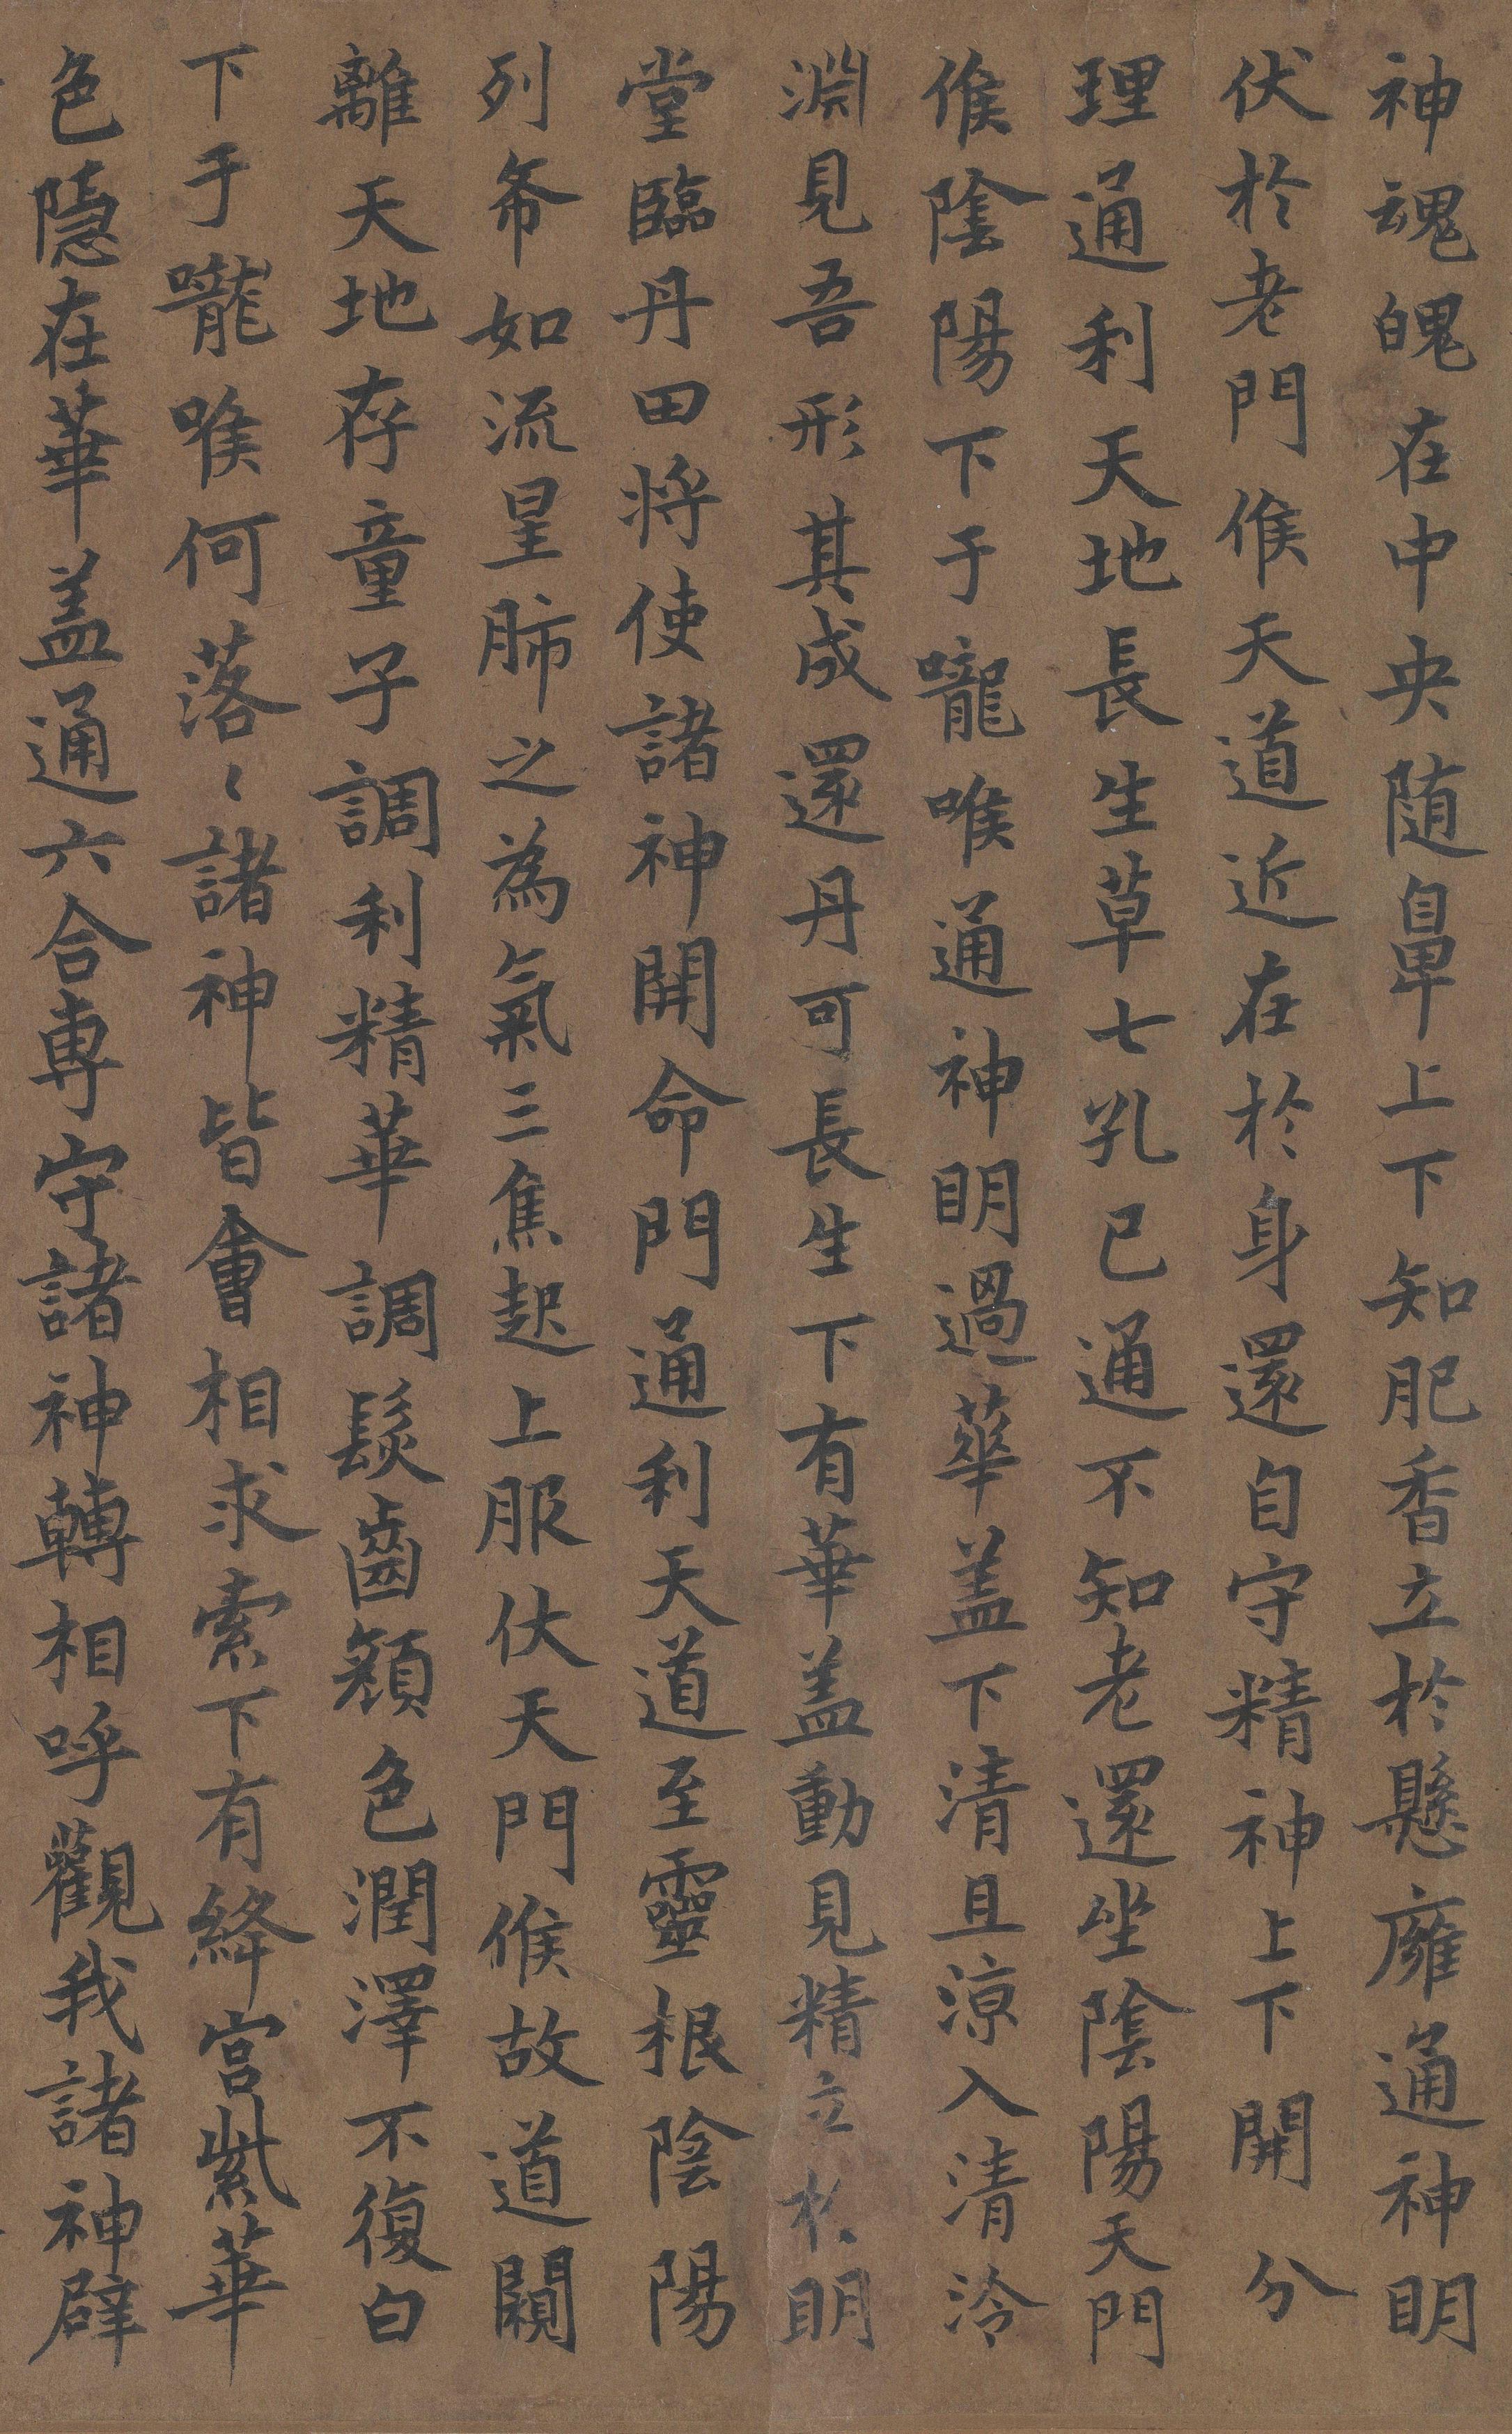 神魂魄在中央随鼻上下知肥香立於懸廱通神明
伏於老門候天道近在於身還自守精神上下開分
理通利天地長生草七孔已通不知老還坐陰陽天門
候陰陽下于嚨喉通神明過華盖下清且涼入清泠
淵見吾形其成還丹可長生下有華盖動見精立於明
堂臨丹田将使諸神開命門通利天道至靈根陰陽
列布如流星肺之為氣三焦起上服伏天門候故道闚
離天地存童子調利精華調髮齒顏色潤澤不復白
下于嚨喉何落〻諸神皆會相求索下有絳宮紫華
色隱在華盖通六合專守諸神轉相呼觀我諸神辟